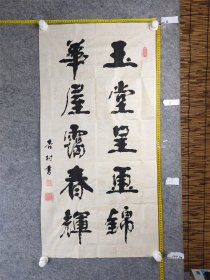 玉堂呈重錦
華屋靄春輝
書